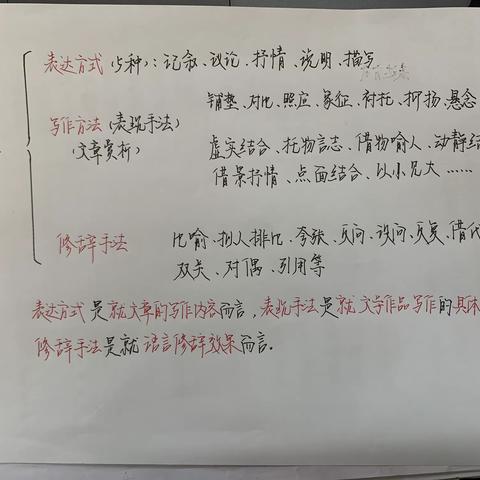 表达方式(5种):记叙、议论、抒情、说明、描写
铺垫、对比、照应、象征、衬托、抑扬、悬念
写作方法(表现手法)
(文章赏析)
虚实结合、托物言志、借物喻人、动静结
借景抒情、点面结合、以小见大……
修辞手法
比喻、拟人、排比、夸张、反问、设问、反复、借代
双关、对偶、引用等
表达方式是就文章的写作内容而言,表现手法是就文学作品写作的具体
修辞手法是就语言修辞效果而言.